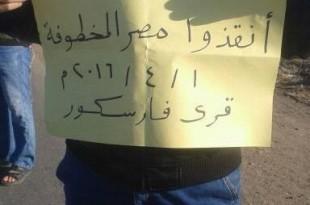 أنقذوا مصر المخطوفة
١ / ٤ / ٢٠١٦ م
قرى فارسكور